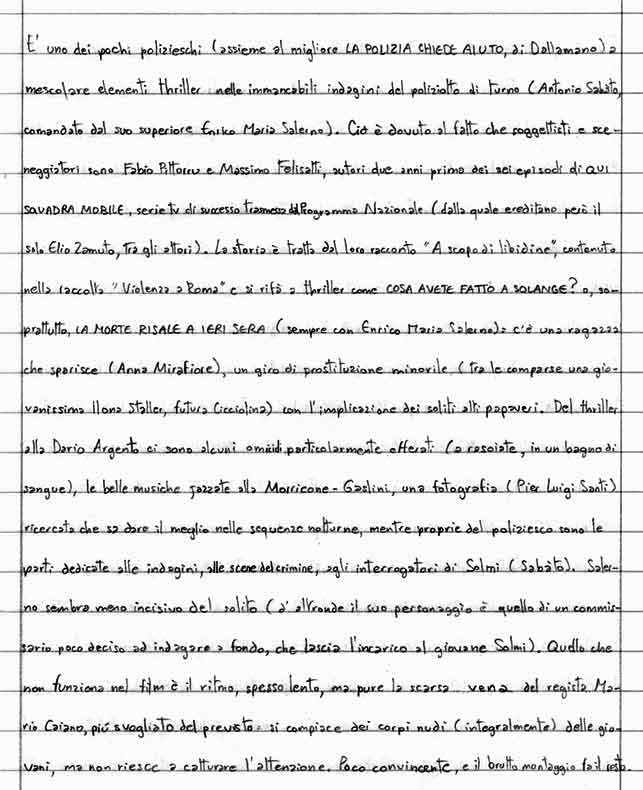 E' uno dei pochi polizieschi (assieme al migliore LA POLIZIA CHIEDE AIUTO, di Dallamano) a
mescolare elementi thriller nelle immancabili indagini del poliziotto di turno (Antonio Sabàto,
comandato dal suo superiore Enrico Maria Salerno). Ciò è dovuto al fatto che soggettisti e sce-
neggiatori sono Fabio Pittorru e Massimo Felisatti, autori due anni prima dei sei episodi di QUI
SQUADRA MOBILE, serie tv di successo trasmessa dal Programma Nazionale (dalla quale ereditano però il
solo Elio Zamuto, tra gli attori). La storia è tratta dal loro racconto "A scopo di libidine", contenuto
nella raccolta "Violenza a Roma" e si rifà a thriller come COSA AVETE FATTO A SOLANGE? o, so-
prattutto, LA MORTE RISALE A IERI SERA (sempre con Enrico Maria Salerno): c'è una ragazza
che sparisce (Anna Mirafiore), un giro di prostituzione minorile (tra le comparse una gio-
vanissima Ilona Staller, futura Cicciolina) con l'implicazione dei soliti alti papaveri. Del thriller
alla Dario Argento ci sono alcuni omicidi particolarmente efferati (a rasoiate, in un bagno di
sangue), le belle musiche jazzate alla Morricone-Gaslini, una fotografia (Pier Luigi Santi)
ricercata che sa dare il meglio nelle sequenze notturne, mentre proprie del poliziesco sono le
parti dedicate alle indagini, alle scene del crimine, agli interrogatori di Solmi (Sabàto). Saler-
no sembra meno incisivo del solito (d'altronde il suo personaggio è quello di un commis-
sario poco deciso ad indagare a fondo, che lascia l'incarico al giovane Solmi). Quello che
non funziona nel film è il ritmo, spesso lento, ma pure la scarsa vena del regista Ma-
rio Caiano, più svogliato del previsto: si compiace dei corpi nudi (integralmente) delle gio-
vani, ma non riesce a catturare l'attenzione. Poco convincente, e il brutto montaggio fa il resto.